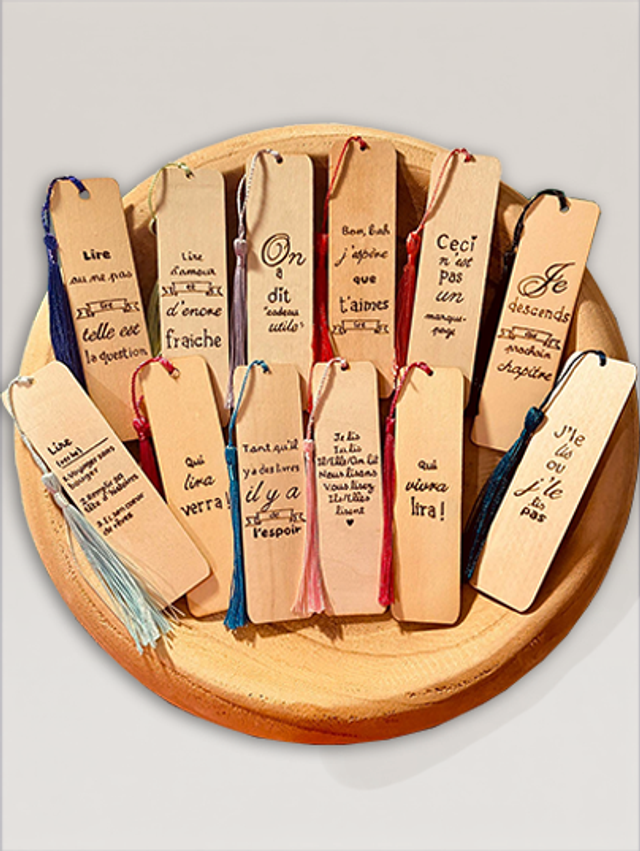 Lire
ou ne pas
lire
telle est
la question
Lire
d'amour
et
d'encre
fraiche
On
a
dit
"cadeau
utile"
Bon, bah
j'espère
que
t'aimes
lire
Ceci
n'est
pas
un
marque-
page
Je
descends
prochain
chapitre
Lire
(verbe)
1.Voyager sans
bouger
2.Remplir sa
tête d'histoires
3.Et son coeur
de rêves
Qui
lira
verra!
Tant qu'il
y'a des livres
il y a
de
l'espoir
Je lis
Tu lis
Il/Elle/On lit
Nous lisons
Vous lisez
Ils/Elles
lisent
Qui
vivra
lira!
J'le
lis
ou
j'le
lis
pas